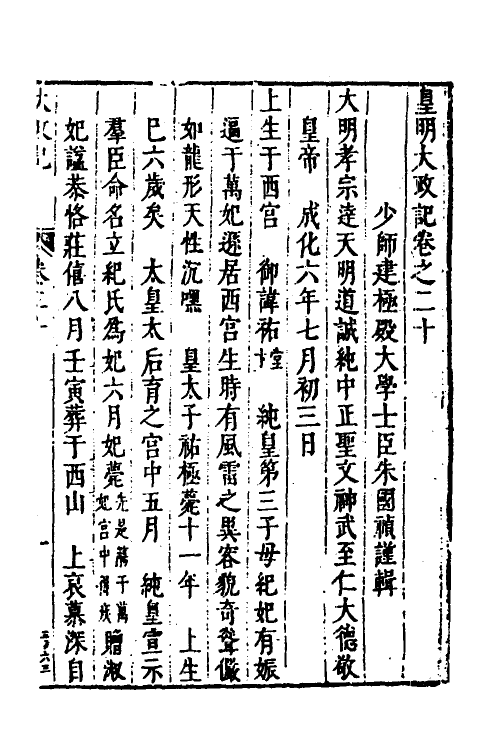 皇明大政記卷之二十
少師建極殿大學士臣朱國禎謹輯
大明孝宗達天明道誠純中正聖文神武至仁大德敬
皇帝　成化六年七月初三日
上生于西宮　御諱祐樘　純皇第三子母紀妃有娠
逼于萬妃遜居西宮生時有風雷之異容貌奇聳儼
如龍形天性沉嘿　皇太子祐極薨十一年　上生
巳六歲矣　太皇太后育之宮中五月　純皇宣示
羣臣命名立紀氏爲妃六月妃薨先是蔣于萬妃宮中得疾贈淑
妃諡恭恪莊僖八月壬寅葬于西山　上哀慕深自
大政記　卷二十　一